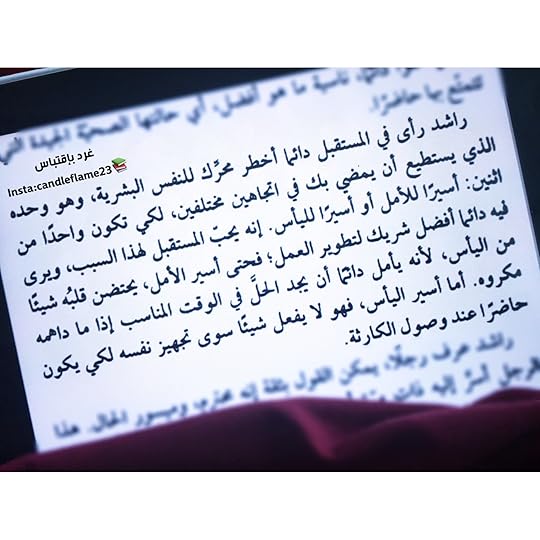 ناسية ما هو أفضل، أي حالتها الصحية الجيدة التي
تتمتع بها حاضرًا.
غرد بإقتباس
Insta:candleflame23
راشد رأى في المستقبل دائما أخطر محرِّك للنفس البشرية، وهو وحده
الذي يستطيع أن يمضي بك في اتجاهين مختلفين، لكي تكون واحدًا من
اثنين: أسيرًا للأمل أو أسيرًا لليأس. إنه يحبّ المستقبل لهذا السبب، ويرى
فيه دائما أفضل شريك لتطوير العمل؛ فحتى أسير الأمل، يحتضن قلبُه شيئًا
من اليأس، لأنه يأمل دائمًا أن يجد الحلَّ في الوقت المناسب إذا ما داهمه
مكروه. أما أسير اليأس، فهو لا يفعل شيئًا سوى تجهيز نفسه لكي يكون
حاضرًا عند وصول الكارثة.
راشد عرف رجلًا، يمكن القول بثقة إنه محترم، وميسور الحال. هذا
الرجل أسرّ إليه ذات